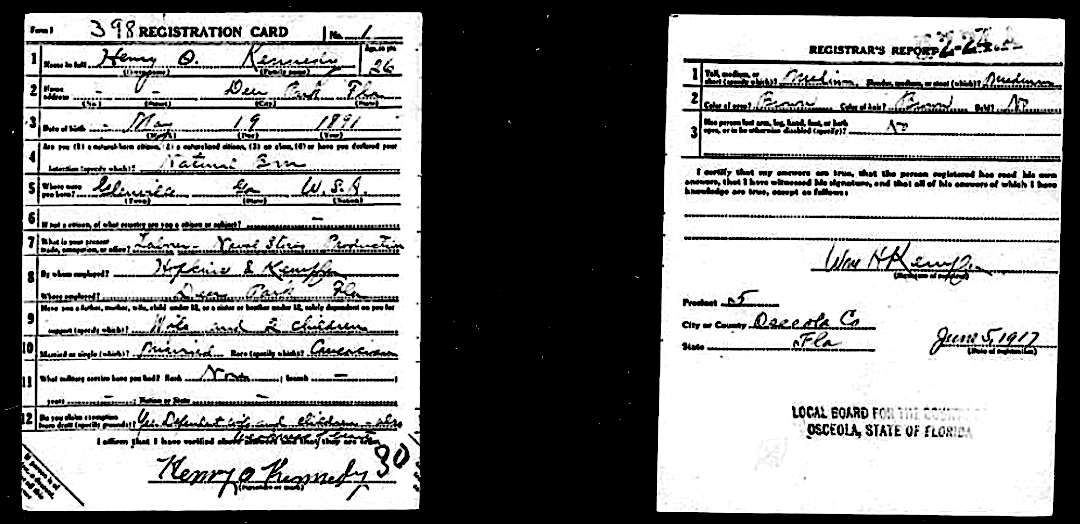 Form 1 398 REGISTRATION CARD No. 1
1 Name in full Henry O. Kennedy Age, in yrs. 26
(Given name) (Family name)
2 Home address - - Deer Park Fla
(No.) (Street) (City) (State)
3 Date of birth - May 19 1891
(Month) (Day) (Year)
4 Are you (1) a natural-born citizen, (2) a naturalized citizen, (3) an alien, (4) or have you declared your
intention (specify which)? Natural Born
5 Where were you born? Glennville Ga U.S.A.
(Town) (State) (Nation)
6 If not a citizen, of what country are you a citizen or subject? -
7 What is your present trade, occupation, or office? Naval Stores Production
8 By whom employed? Hopkins &
Where employed? Deer Park Fla
9 Have you a father, mother, wife, child under 12, or a sister or brother under 12, solely dependent on you for
support (specify which)? Wife and 2 children
10 Married or single (which)? Married Race (specify which)? Caucasian
11 What military service have you had? Rank None ; branch - ;
years - ; Nation or State -
12 Do you claim exemption from draft (specify grounds)? Yes Dependent wife and children - also
I affirm that I have verified above answers and that they are true.
Henry O Kennedy 30
(Signature or mark)
If person is of
REGISTRAR'S REPORT
1 Tall, medium, or short (specify which)? Medium Slender, medium, or stout (which)? Medium
2 Color of eyes? Brown Color of hair? Brown Bald? No
3 Has person lost arm, leg, hand, foot, or both
eyes, or is he otherwise disabled (specify)? No
I certify that my answers are true, that the person registered has read his own
answers, that I have witnessed his signature, and that all of his answers of which I have
knowledge are true, except as follows:
Wm H
(Signature of registrar)
Precinct 5
City or County Osceola Co
State Fla June 5, 1917
(Date of registration)
LOCAL BOARD FOR THE COUNTY OF
OSCEOLA, STATE OF FLORIDA